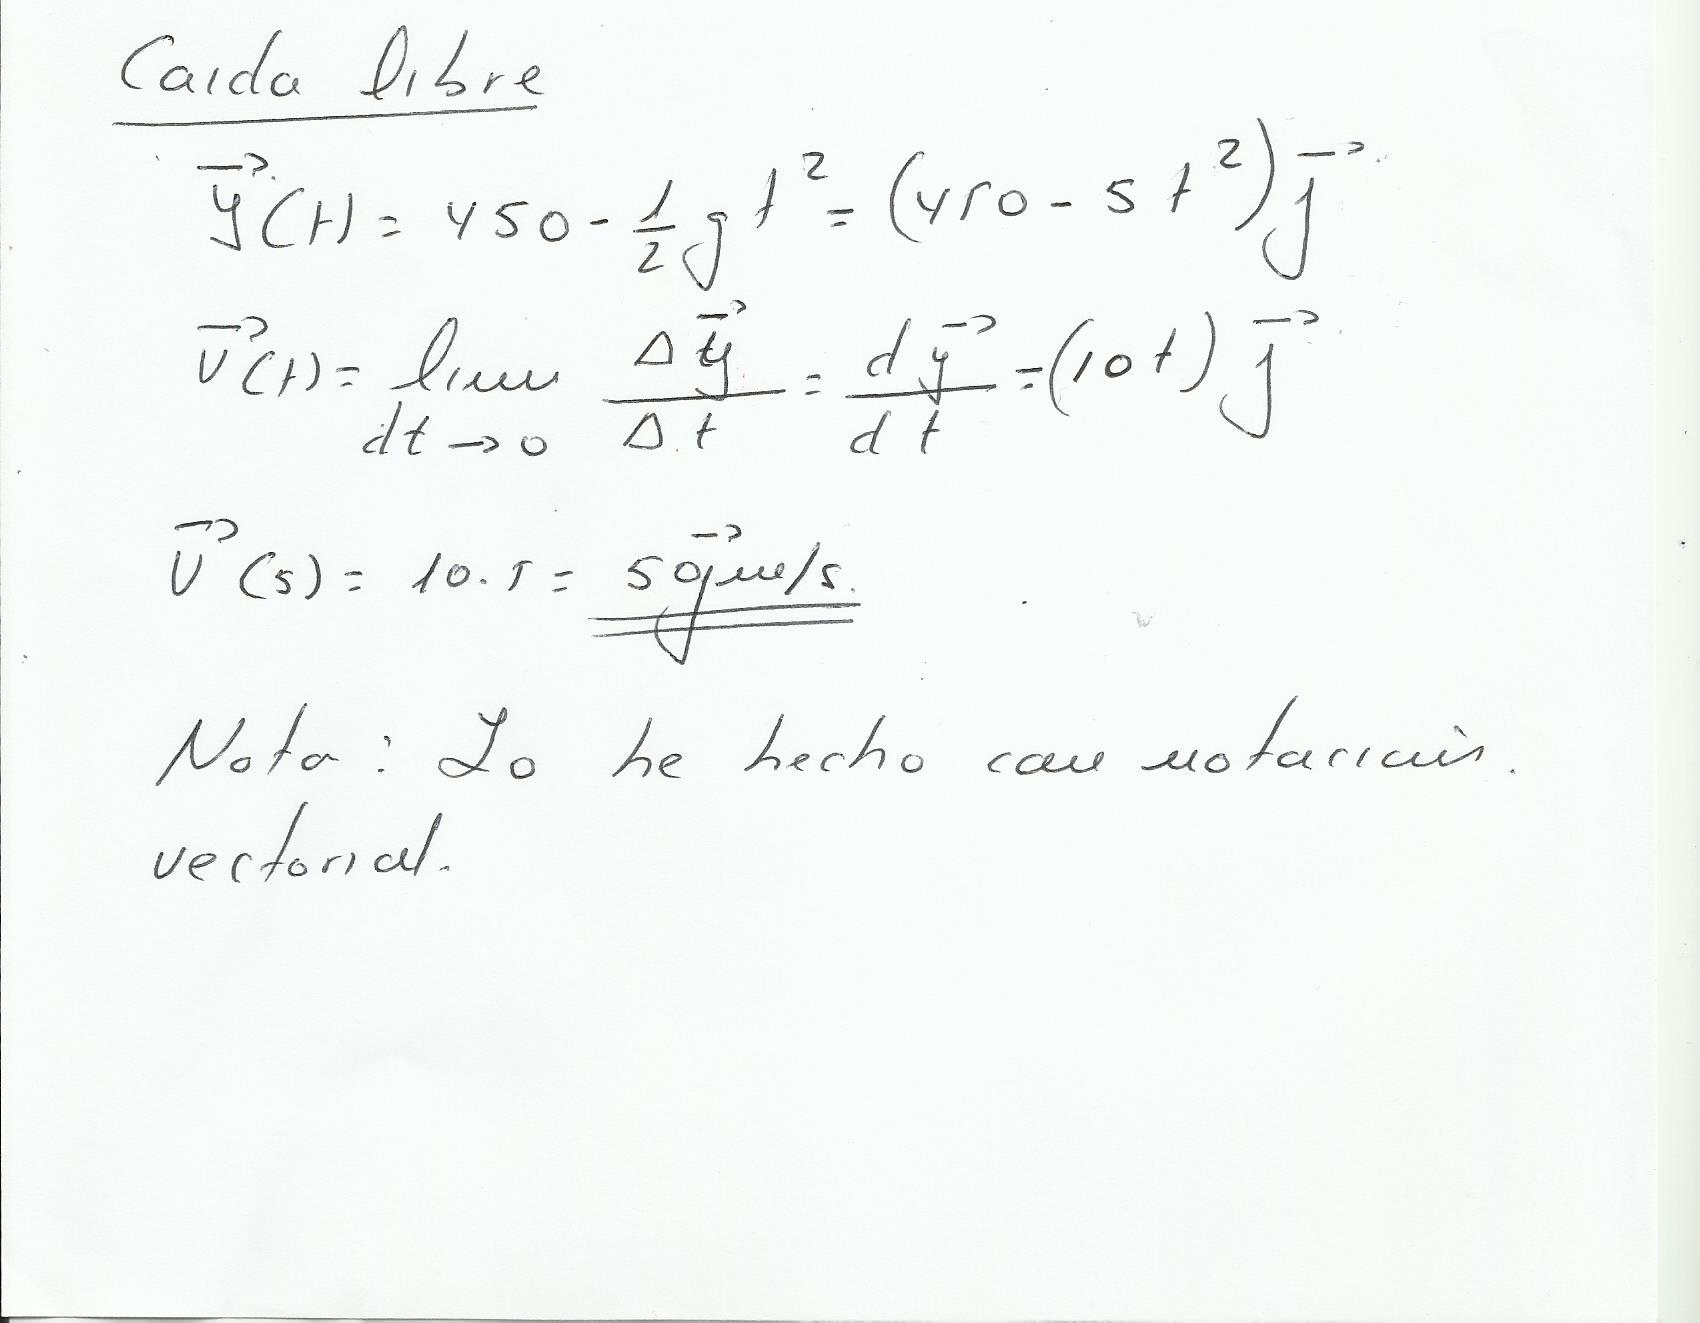 Caída libre
y⃗(t) = 450 - 1/2 g t² = (450 - 5 t²) j⃗
v⃗(t) = lim dt→0 Δy⃗/Δt = dy⃗/dt = (10t) j⃗
v⃗(5) = 10.5 = 50j⃗ m/s.
Nota: Lo he hecho con notación
vectorial.